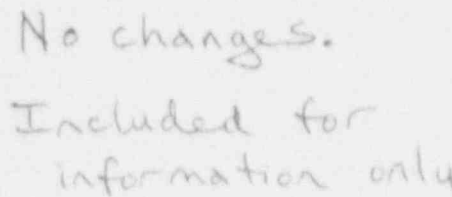 No changes.
Included for
information only